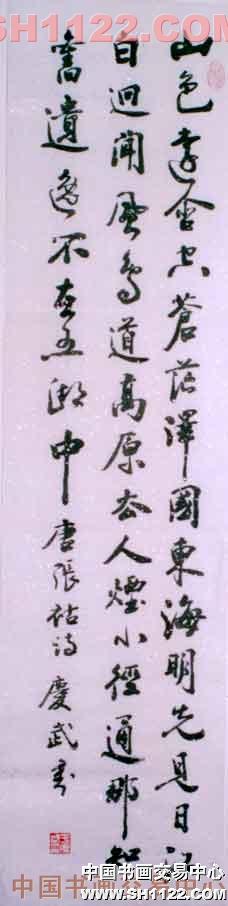 SH1122.COM
山色遠含空蒼茫澤國東海明先見日江
白迥聞風鳥道高原去人煙小徑通那知
舊遺逸不在五湖中唐張祜詩慶武書
中国书画交易中心
中国书画交易中心
www.SH1122.COM